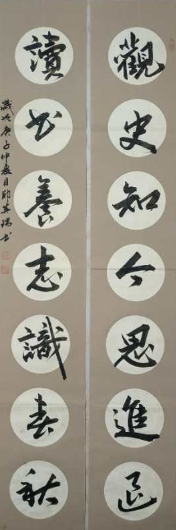 觀史知今思進退
讀书養志識春秋
歲次庚子仲夏月书